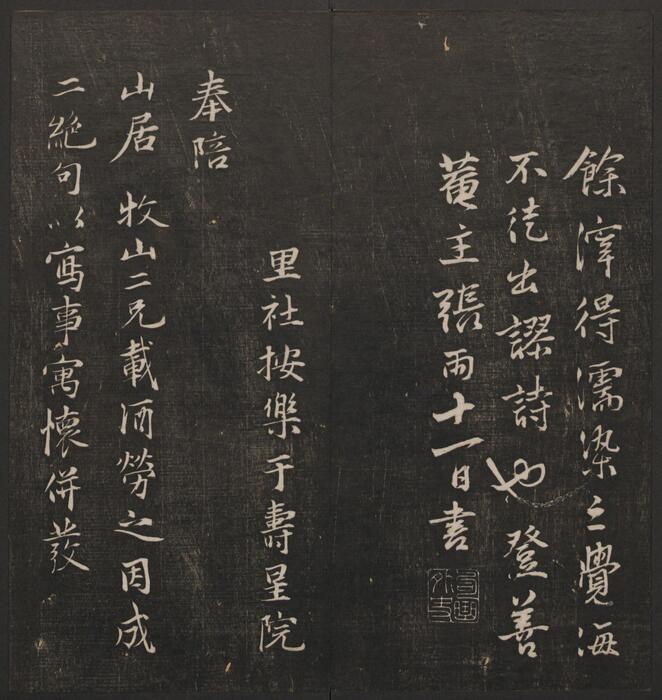 餘滓得濡染之覺海
不徒出謬詩也登善
菴主張雨十一日書
里社按樂于壽星院
奉陪
山居 牧山二兄載酒勞之因成
二絕句以寫事寓懷併發